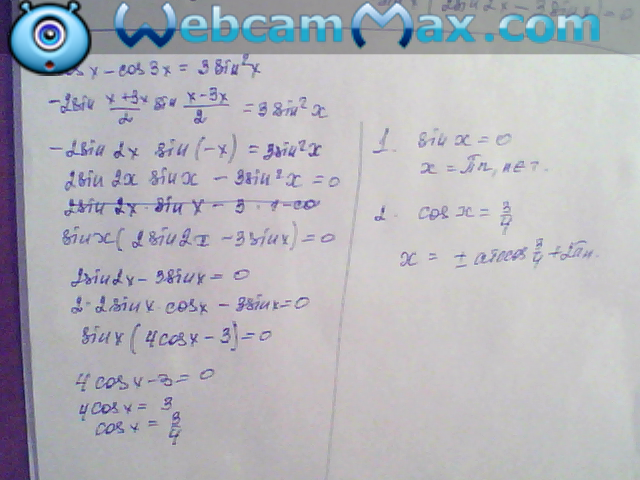 WebcamMax.com
cos x - cos 3x = 3 sin²x
-2sin (x+3x)/2 sin (x-3x)/2 = 3 sin²x
-2sin 2x sin(-x) = 3sin²x
2sin 2x sin x - 3sin²x = 0
2sin 2x · sin x - 3
sin x(2sin2x - 3sin x) = 0
2sin2x - 3sin x = 0
2·2sin x·cos x - 3sin x = 0
sin x(4cos x - 3) = 0
4cos x - 3 = 0
4cos x = 3
cos x = 3/4
1. sin x = 0
x = πn, n∈Z.
2. cos x = 3/4
x = ± arccos 3/4 + 2πn.